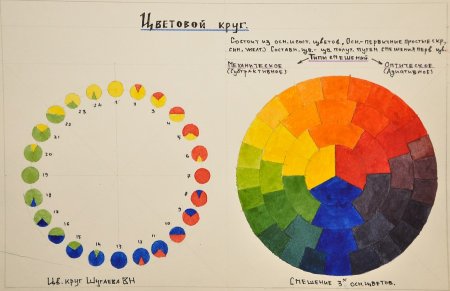 Цветовой круг.
Состоит из осн. и сост. цветов, Осн.-первичные простые (кр.,
син., желт.) Составн. цв.- цв. получ. путем смешения перв. цв.
Типы смешений
Механическое
(Субтрактивное)
Оптическое
(Адитивное)
1
2
3
4
5
6
7
8
9
10
11
12
13
14
15
16
17
18
19
20
21
22
23
24
Цв. круг Шугаева ВН
Смешение 3х осн. цветов.